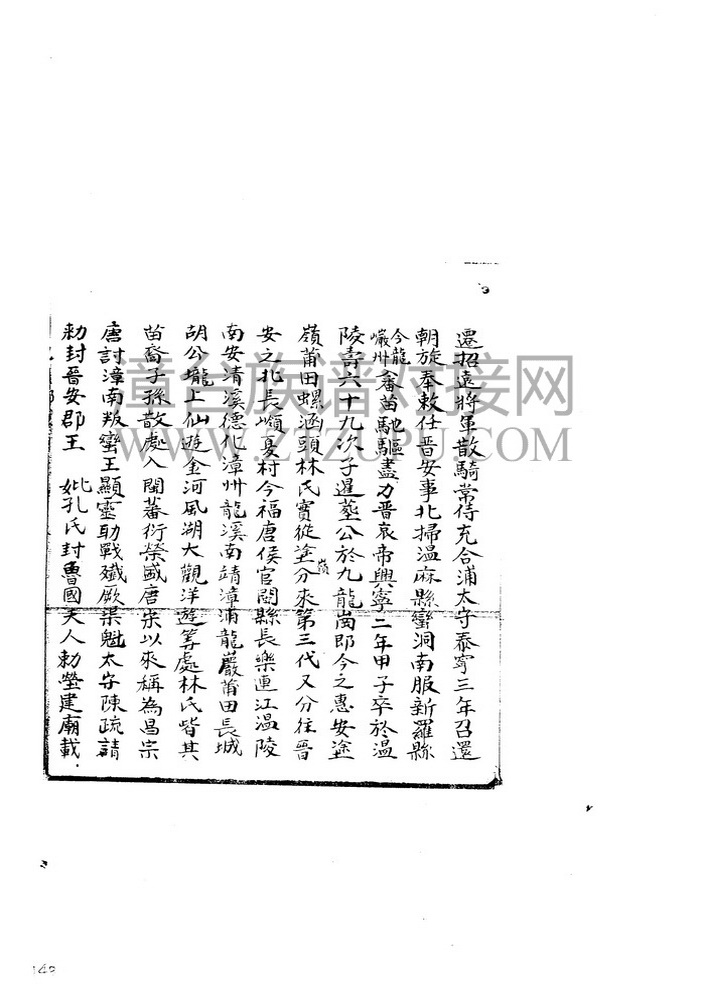 遷招遠將軍散騎常侍充合浦太守泰寧三年召還
朝旋奉敕任晋安事北掃温麻縣蠻洞南服新羅縣
今龍巖州蕃苗馳驅盡力晋哀帝興寧二年甲子卒於温
陵壽六十九次子暹塟公於九龍崗即今之惠安塗
嶺莆田螺涵頭林氏實從塗嶺分來第三代又分往晋
安之北長順憂村今福唐侯官閩縣長樂連江温陵
南安清溪德化漳州龍溪南靖漳浦龍巖莆田長城
胡公壠上仙遊金河風湖大觀洋遊等處林氏皆其
苗裔子孫散處入閩蕃衍榮盛唐宋以來稱為昌宗
唐討漳南叛蠻王顯靈助戰殲厥渠魁太守陳疏請
勅封晋安郡王 妣孔氏封魯國夫人勅塋建廟載
童台族谱对接网
WWW.ZTZUPU.COM
142